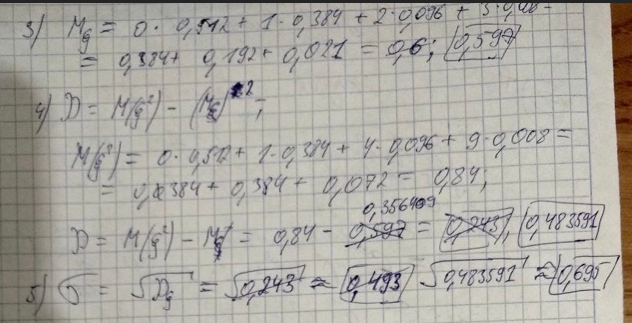 3) Mξ = 0 · 0,512 + 1 · 0,384 + 2 · 0,096 + 3 ·
= 0,384 + 0,192 + 0,021 = 0,6; 0,597
4) D = M(ξ²) - (Mξ)²;
M(ξ²) = 0 · 0,512 + 1 · 0,384 + 4 · 0,096 + 9 · 0,008 =
= 0,384 + 0,384 + 0,072 = 0,84;
0,356409
D = M(ξ²) - Mξ² = 0,84 - 0,597 = 0,243; 0,483591
5) σ = √Dξ = √0,243 ≈ 0,493 √0,483591 ≈ 0,695